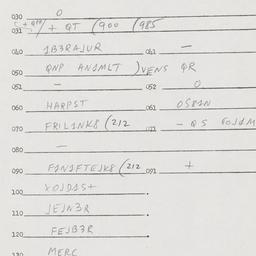 030 0
031 + QT (900 (985
040 1B3RAJUR 041 —
050 QNP ANJMLT )VENS QR
051 — 052 0
060 HARPST 061 OS81N
070 FRIL1NK8 (212 071 - QS
080 —
090 F1N1FTEJK8 (212 091 +
100 XOJDAS+
110 JEJN3R
120 FEJB3R
130 MERC